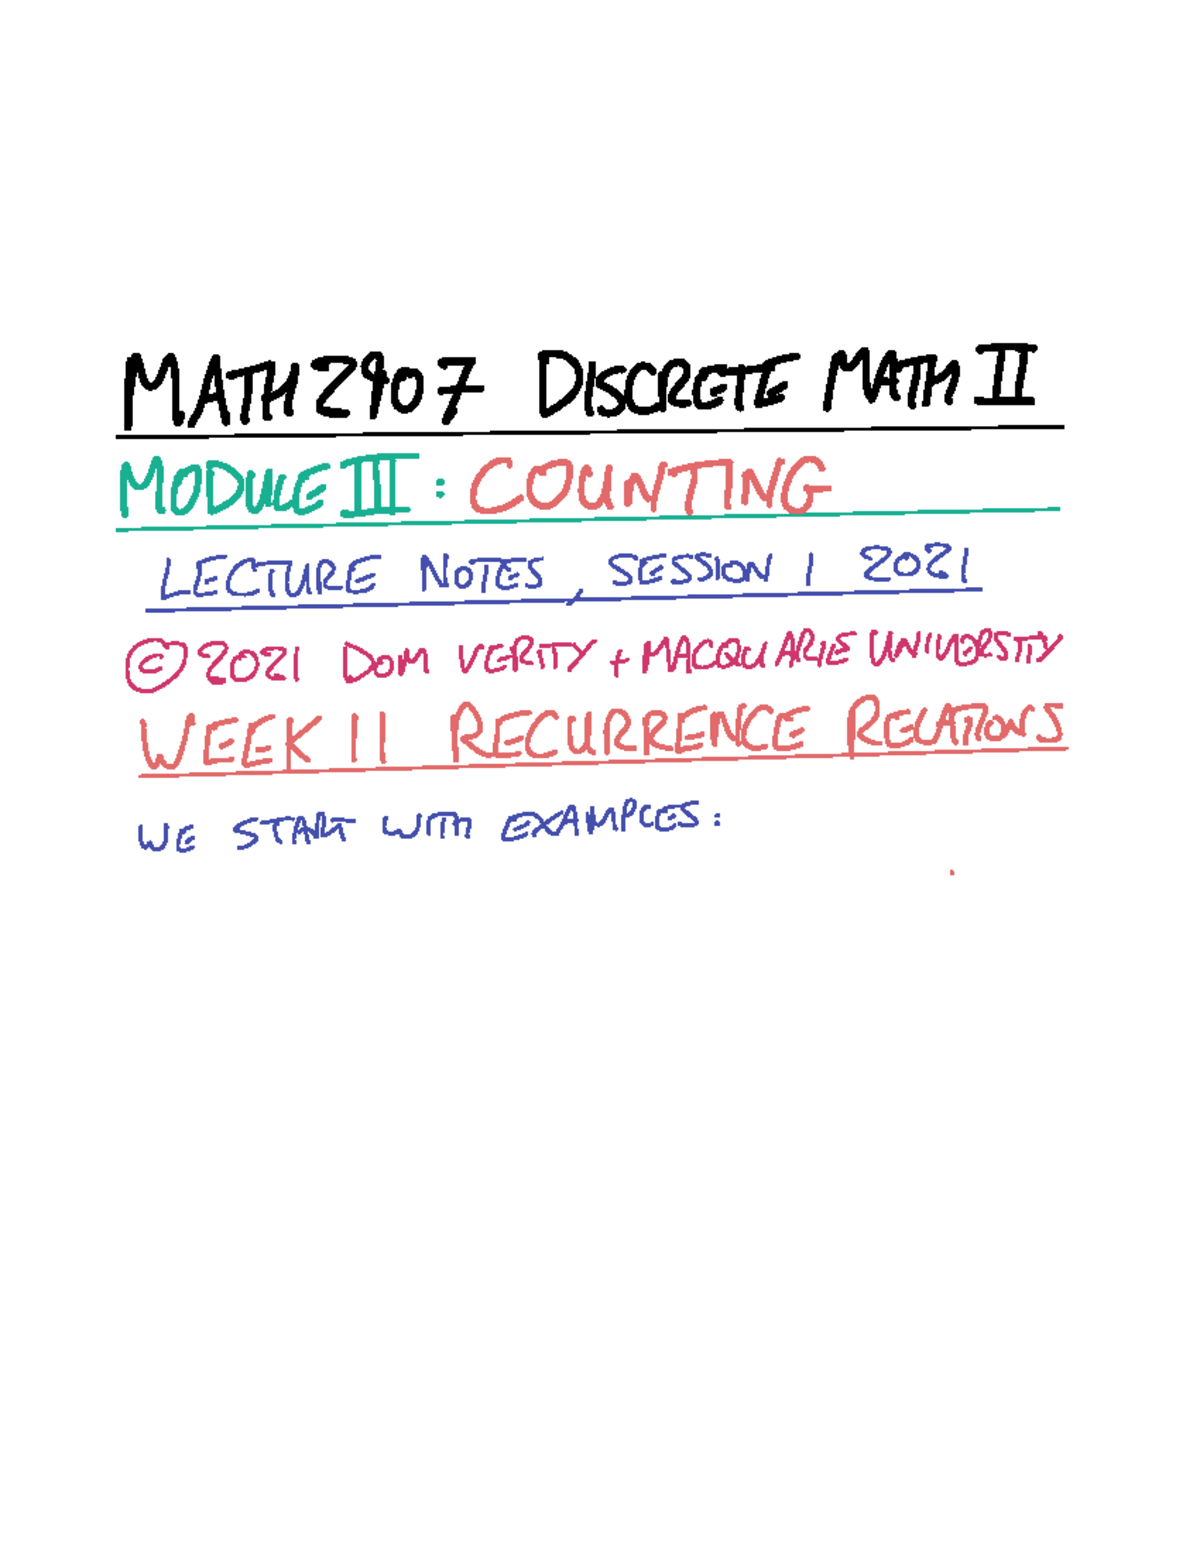 MATH2907 DISCRETE MATH II
MODULE III : COUNTING
LECTURE NOTES, SESSION 1 2021
© 2021 DOM VERITY + MACQUARIE UNIVERSITY
WEEK 11 RECURRENCE RELATIONS
WE START WITH EXAMPLES: